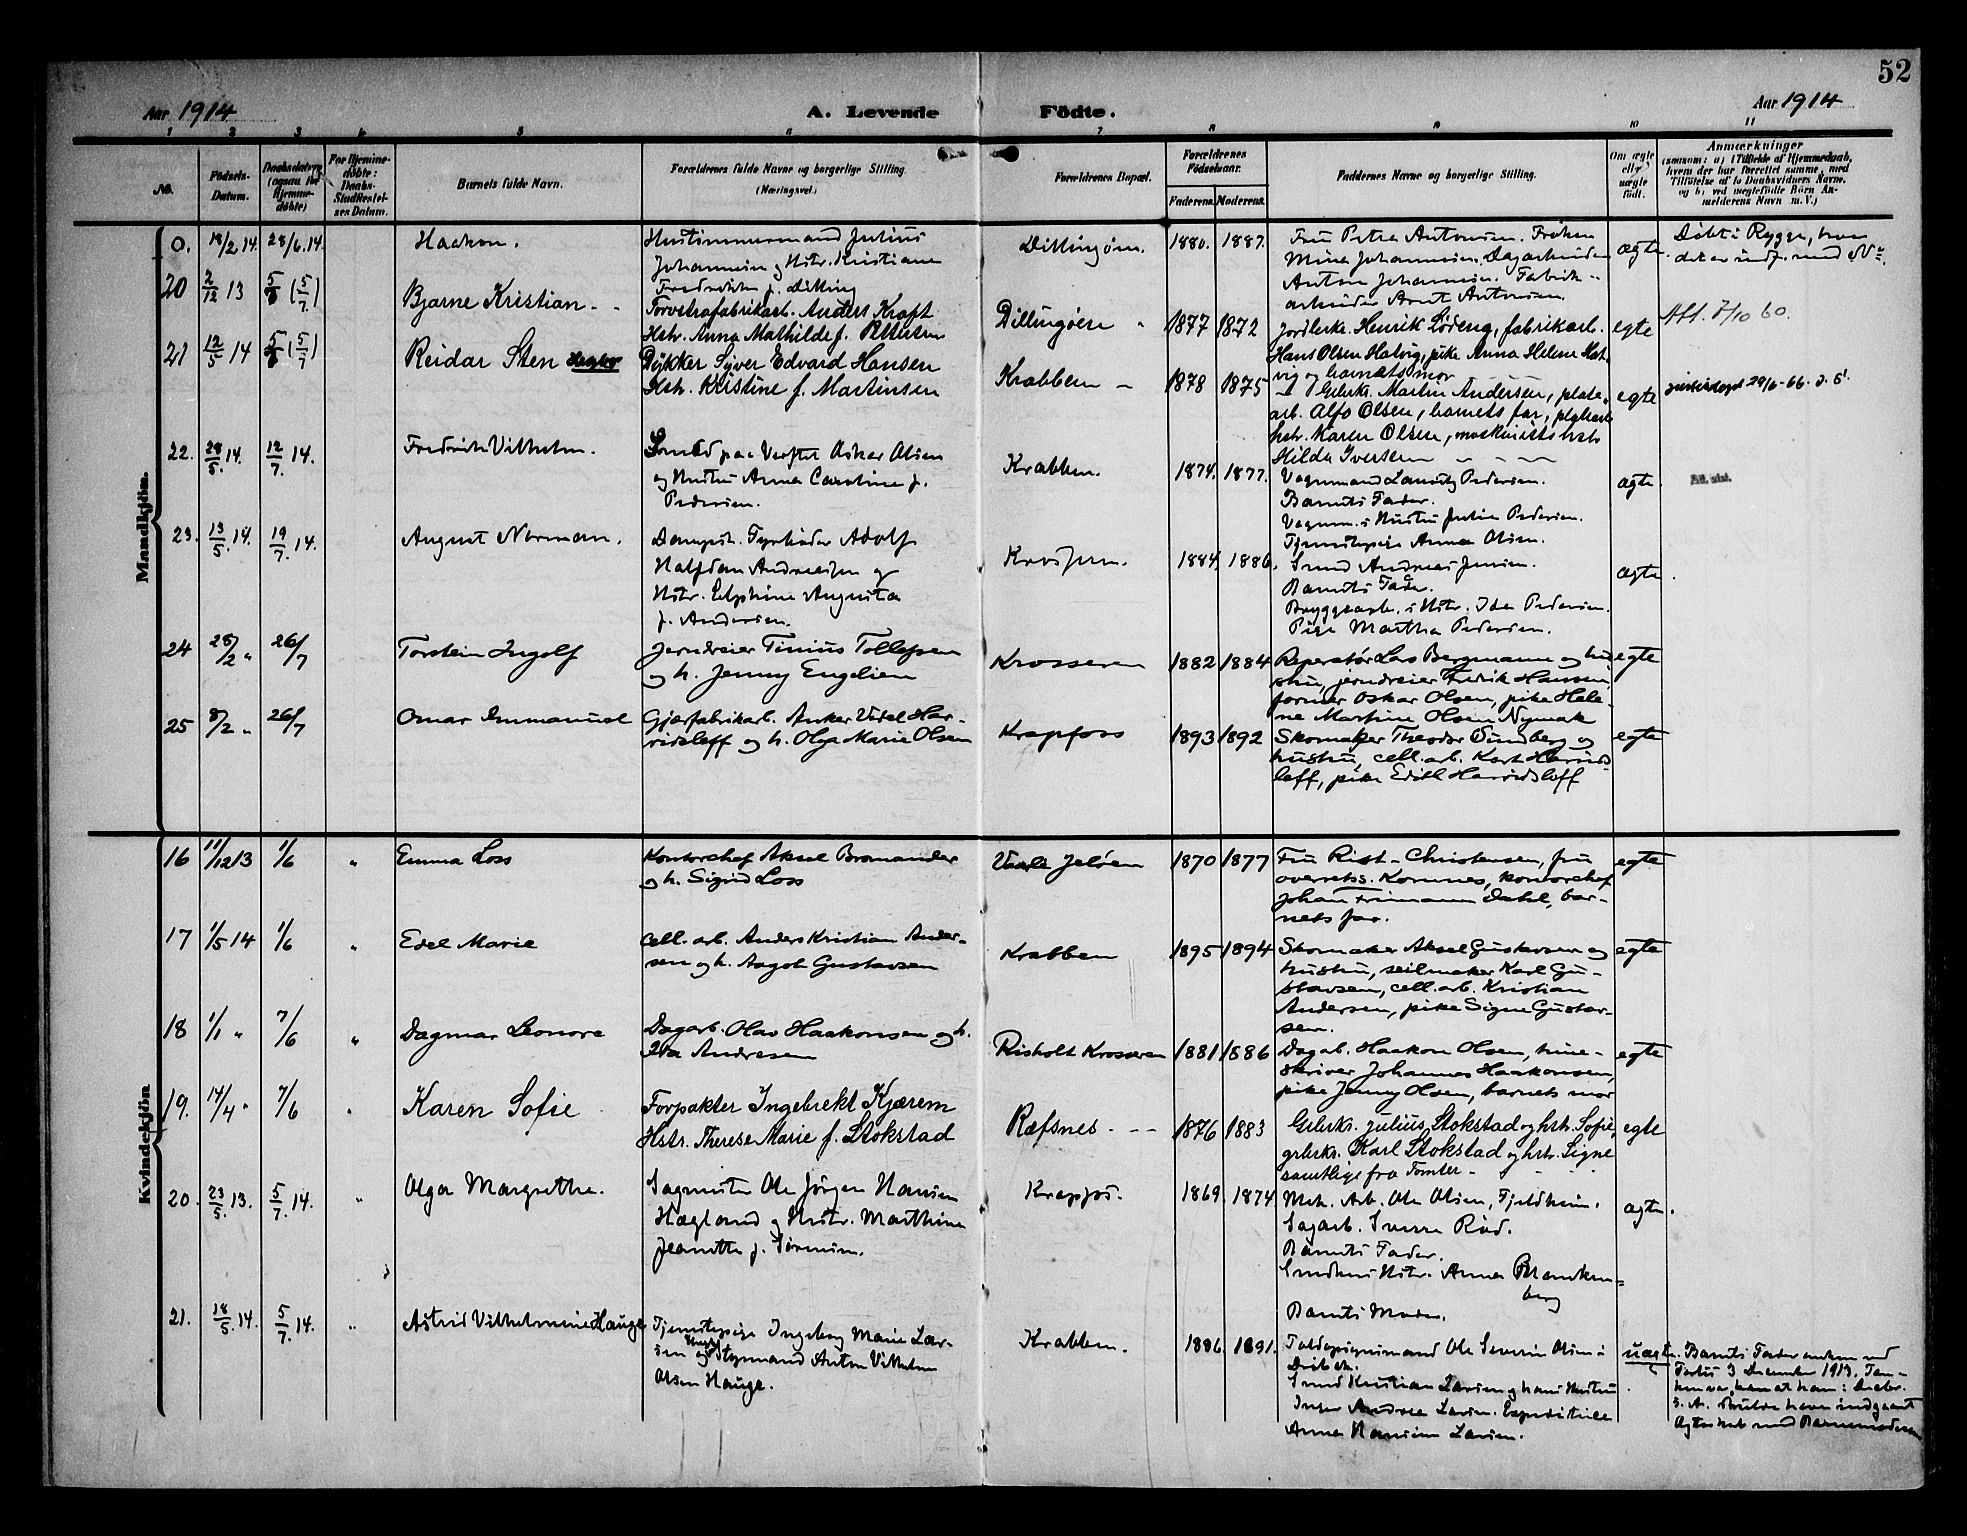 52
Aar 1914 A. Levende Födte. Aar 1914
1 2 3 4 5 6 7 8 9 10 11
No. Födsels-Datum. Daabsdatum (ogsaa for Hjemme-döbte) For Hjemme-döbte: Daabs-Stadfæstel-ses Datum. Barnets fulde Navn. Forældrenes fulde Navne og borgerlige Stilling. (Næringsvei.) Forældrenes Bopæl. Forældrenes Födselsaar. Faderens. Moderens. Faddernes Navne og borgerlige Stilling. Om ægte eller uægte født. Anmærkninger
(saasom: a) i Tilfælde af Hjemmedaab,
hvem der har forrettet samme, med
Tilføielse af to Daabsvidners Navne.
og b) ved uegtefödte Börn An-
melderens Navn m. V.)
Mandkjön.
0. 18/2 14. 28/6. 14. Haakon. Hustømmermand Julius
Johannesen og Hstr. Kristiane
Fredrikke f. Dilling
Dillingøen. 1880. 1887. Fru Petra Antonsen. Frøken
Mina Johannesen. Dagarbeider
Anton Johannesen. Fabrik-
arbeider Arnt Antonsen.
ægte. Døbt i Rygge, hvor
det er indf. med No.
20 2/12 13 5/6 (5/7) Bjarne Kristian Torvstrøfabrikarb. Anders Kraft
Hstr. Anna Mathilde f. Pettersen
Dillingøen 1877 1872 Jordbrk. Henrik Lödeng, fabrikarb.
Hans Olsen Hatvig, pike Anna Helene Hat-
vig og barnets mor
egte Att. 7/10 60.
21 12/5 14 5/6 (5/7) Reidar Sten Dykker Syver Edvard Hansen
Hstr. Kristine f. Martinsen
Krabben 1878 1875 Grbrk. Martin Andersen, plate-
arb. Alfo Olsen, barnets far,
hstr. Karen Olsen, maskinists hstr.
Hilda Iversen
egte 29/6-66
22. 28/5. 14. 12/7. 14. Fredrik Vilhelm. Smed paa Verftet Oskar Olsen
og Hustru Anna Caroline f.
Pedersen.
Krabben. 1874. 1877. Vognmand Lauritz Pedersen.
Barnets Fader.
Vognm.s Hustru Julia Pedersen.
Tjenestepige Anna Olsen.
ægte. Att. utst.
23. 13/5. 14. 19/7. 14. August Norman. Dampsk. Fyrbøder Adolf
Halfdan Andreassen og
Hstr. Elphine Augusta
f. Andersen.
1884. 1886. Smed Andreas Jensen.
Barnets Fader.
Bryggearb.s Hstr. Ida Pedersen.
Pige Martha Pedersen.
ægte.
24 28/2 " 26/7 Torstein Ingolf Jerndreier Tinius Tollefsen
og h. Jenny Engelien
Krosseren 1882 1884 Reperatør Lars Bergmann og hu-
stru, jerndreier Fredrik Hansen,
former Oskar Olsen, pike Hele-
ne Martine Olsen Nymak
egte
25 8/2 " 26/7 Omar Immanuel Gjærfabrikarb. Anker Videl Har-
ridsleff og h. Olga Marie Olsen
Krapfoss 1893 1892 Skomaker Theodor Sundberg og
hustru, cell. arb. Karl Harrids-
leff, pike Edith Harridsleff
egte
Kvindekjön
16 11/12 13 1/6 " Emma Loss Kontorchef Aksel Bromander
og h. Sigrid Loss
Jeløen 1870 1877 Fru Rist-Christensen, fru
overrets. Komnes, kontorchef
Johan Frimann Dahl, bar-
nets far.
egte
17 1/5 14 1/6 " Edel Marie Cell. arb. Anders Kristian Ander-
sen og h. Aagot Gustavsen
Krabben 1895 1894 Skomaker Aksel Gustavsen og
hustru, seilmaker Karl Gu-
stavsen, cell. arb. Kristian
Andersen, pike Signe Gustav-
sen.
egte
18 1/1 " 7/6 " Dagmar Leonore Dagarb. Olav Haakonsen og h.
Ida Andresen
Risholt Krosseren 1881 1886 Dagarb. Haakon Olsen, hine-
skriver Johannes Haakonsen,
pike Jenny Olsen, barnets mor
egte
19. 14/4 " 7/6 " Karen Sofie Forpakter Ingebrekt Kjærem
Hstr. Therese Marie f. Stokstad
Refsnes 1876 1883 Grbrk. Julius Stokstad og hstr. Sofie,
grbrk. Karl Stokstad og hstr. Signe
samtlige fra Tomter
egte
20. 23/5. 13. 5/7. 14. " Olga Margrethe. Sagmester Ole Jørgen Hansen
Hægland og Hstr. Marthine
Jeanette f. Sørensen.
Krapfos. 1869. 1874 Mek. Arb. Ole Olsen, Fjeldheim.
Sagarb. Sverre Rød.
Barnets Fader.
Smedens Hstr. Anna Blanken-
berg
Barnets Moder.
ægte.
21. 18/5. 14. 5/7. 14. " Astrid Vilhelmine Hauge Tjenestepige Ingeborg Marie Lar-
sen og Styrmand Anton Vilhelm
Olsen Hauge.
Krabben. 1886. 1891. Toldopsynsmand Ole Severin Olsen i
Drøbak.
Smed Kristian Larsen og hans Hustru
Inger Andrea Larsen. Expeditrice
Anna Hansine Larsen.
uægte. Barnets Fader omkom ved
Forlis 3 December 1913. Tan-
ken var, han at han i Decbr.
s. A. skulde have indgaaet
Ægteskab med Barnemoderen